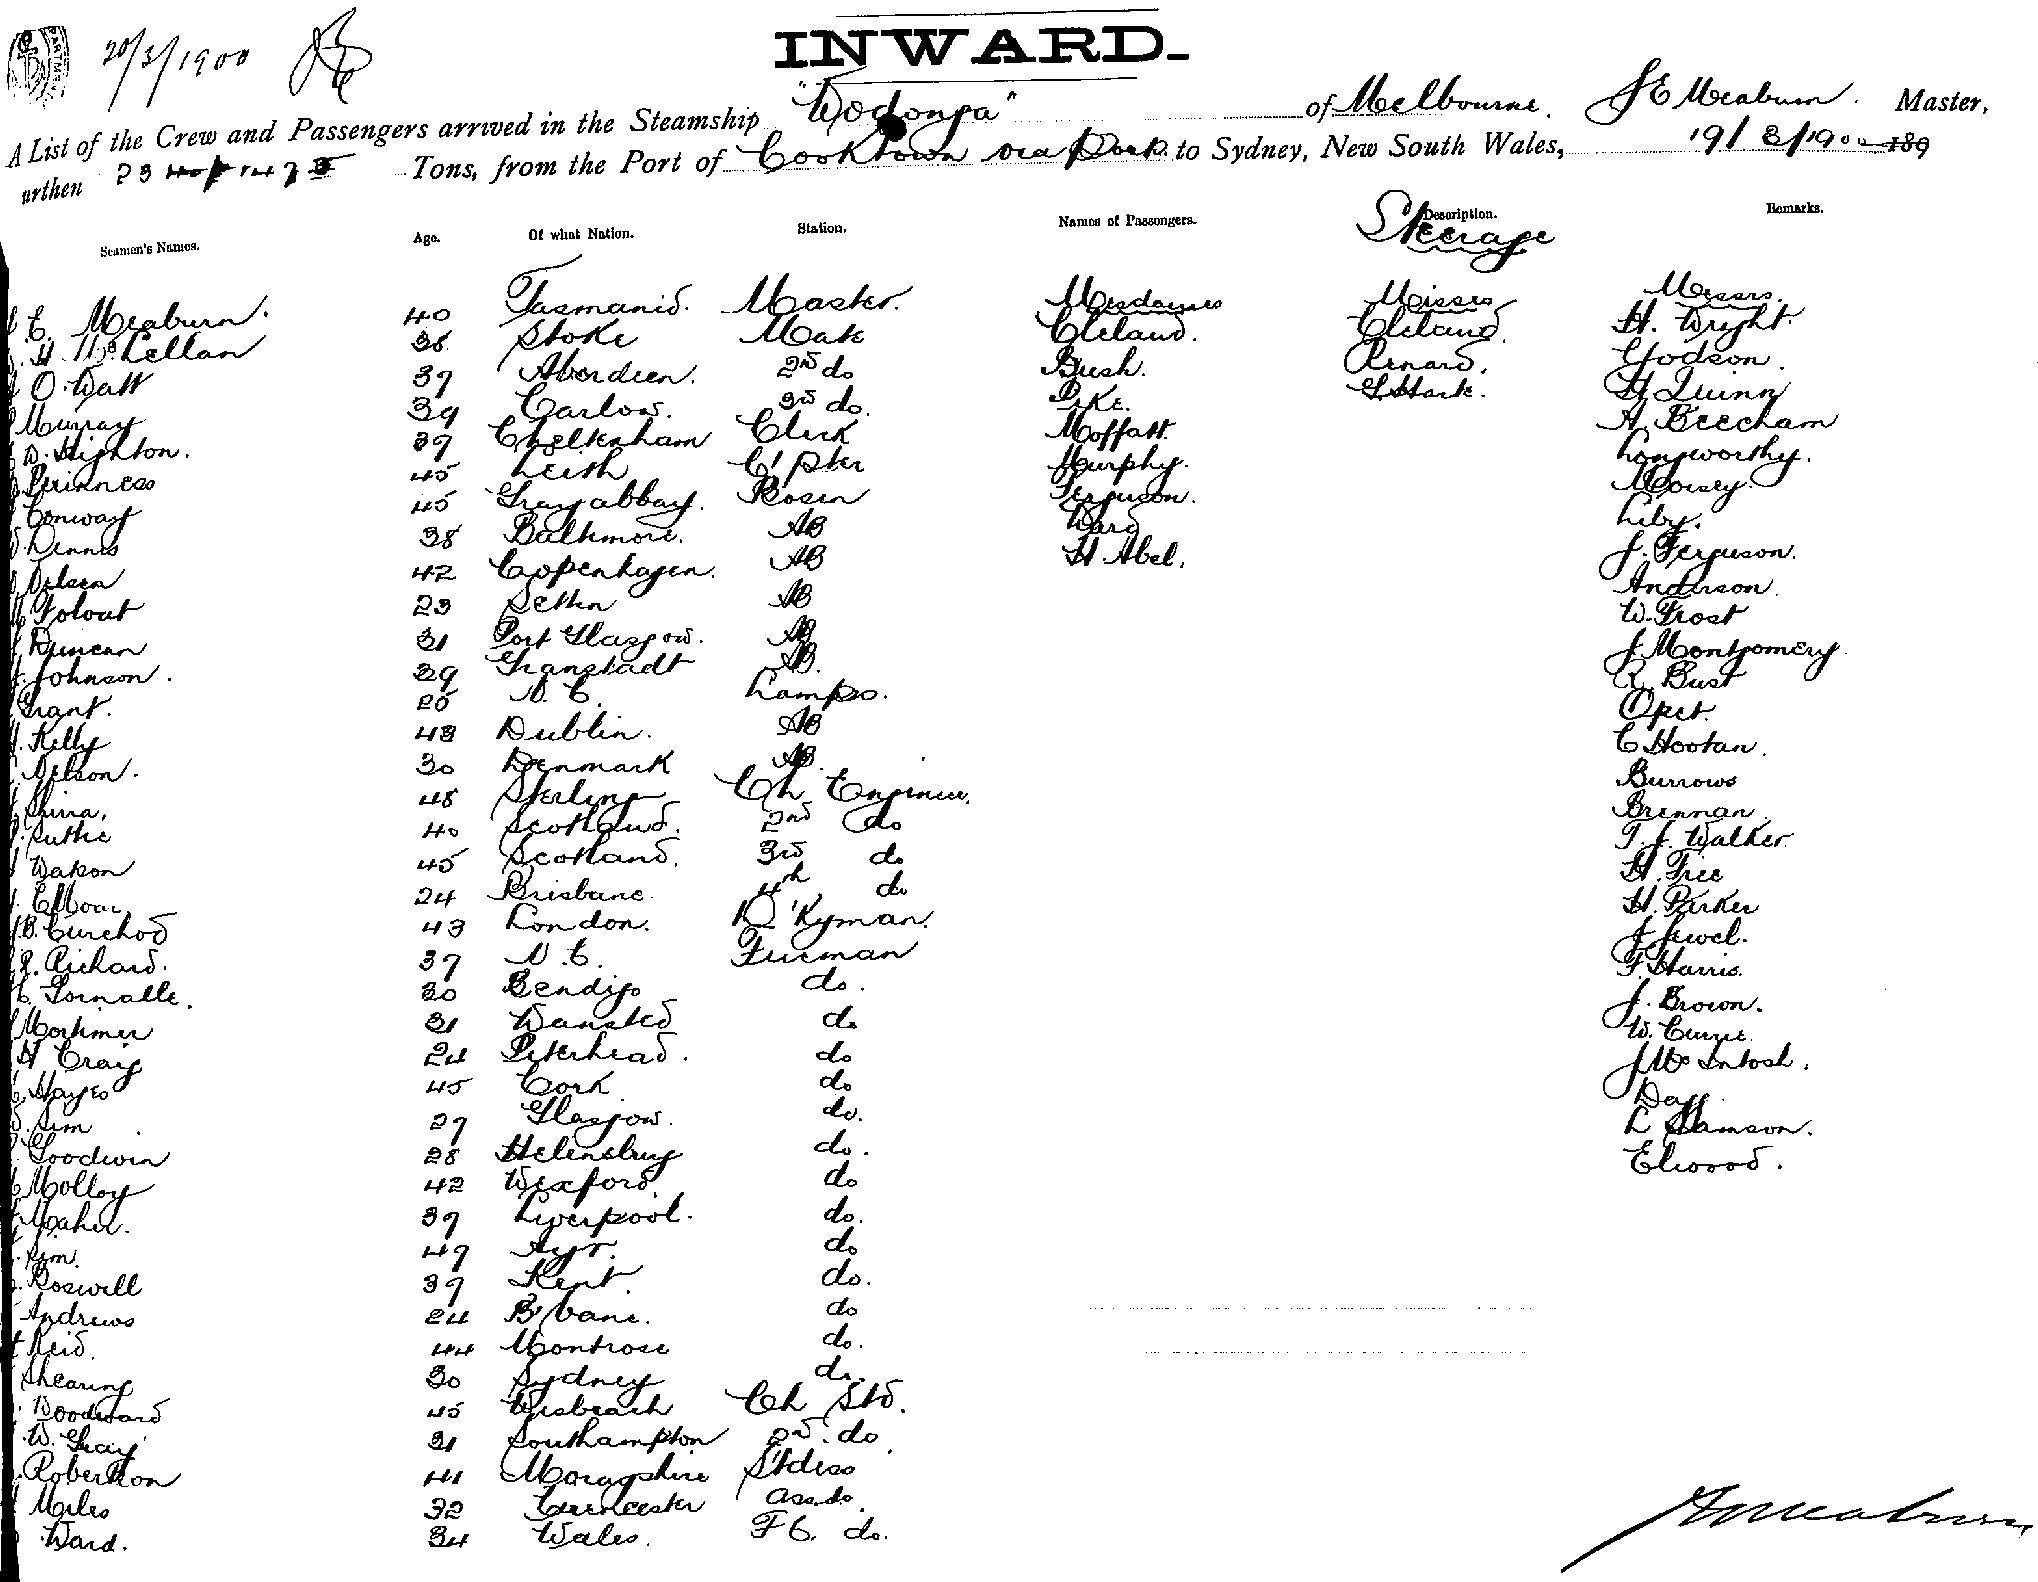 20/3/1900
INWARD.
A List of the Crew and Passengers arrived in the Steamship "Wodonga" of Melbourne. J E Meaburn. Master,
urthen Tons, from the Port of Cooktown via Ports to Sydney, New South Wales, 19/3/1900 189
Seamen's Names. Age. Of what Nation. Station. Names of Passengers. Description. Remarks.
Steerage
E. Meaburn. 40 Tasmania. Master. Mesdames Misses Messrs.
H. McLellan 38 Stoke Mate Cleland. Cleland. H. Wright.
O. Watt 37 Aberdeen. 2nd do Bush. Renard. Godson.
Murray 39 Carlow. 3rd do. Pike. G Stark. H Quinn
D. Highton. 37 Cheltenham Clerk Moffatt. A. Beecham
45 Leith C'pter Murphy. Longworthy.
Conway 45 Grayabbay. Bosen Ferguson. Morsey.
Dennis 38 Baltimore. AB Ward
Nelsen 42 Copenhagen. AB H Abel. J. Ferguson.
23 Settin AB Anderson.
Duncan 31 Port Glasgow. AB W. Frost
Johnson. 29 AB. J. Montgomery.
Grant. 25 N. C. Lamps. R. Bust
Kelly 43 Dublin. AB
Nelson. 30 Denmark AB C Hootan.
48 Sterling Ch Engineer. Burrows
40 Scotland. 2nd do Brennan.
Watson 45 Scotland. 3rd do T. J. Walker.
24 Brisbane. 4th do H. Free
B. Curchod 43 London. D'Kyman. H. Parker
R. Richard. 37 N. C. Fireman J Jewel.
30 Bendigo do. F. Harris.
Mortimer 31 Wansted do J. Brown.
H Craig 24 Peterhead. do W. Currie.
Hayes 45 Cork do J McIntosh.
Sim 27 Glasgow. do. Day.
Goodwin 28 Helensbrug do. L Samson.
Molloy 42 Wexford. do Elwood.
Maher. 39 Liverpool. do.
Sim. 47 Ayr. do
Boswell 39 Kent do.
Andrews 24 B'bane. do
Reid. 44 Montrose do.
Shearing 30 Sydney do.
Woodward 45 Wisbeach Ch Std.
W. Gray 31 Southampton 2nd. do
Robertson 44 Morayshire St'dess
Miles 32 Cirencester ass. do.
Ward. 34 Wales. F C. do.
J E Meaburn